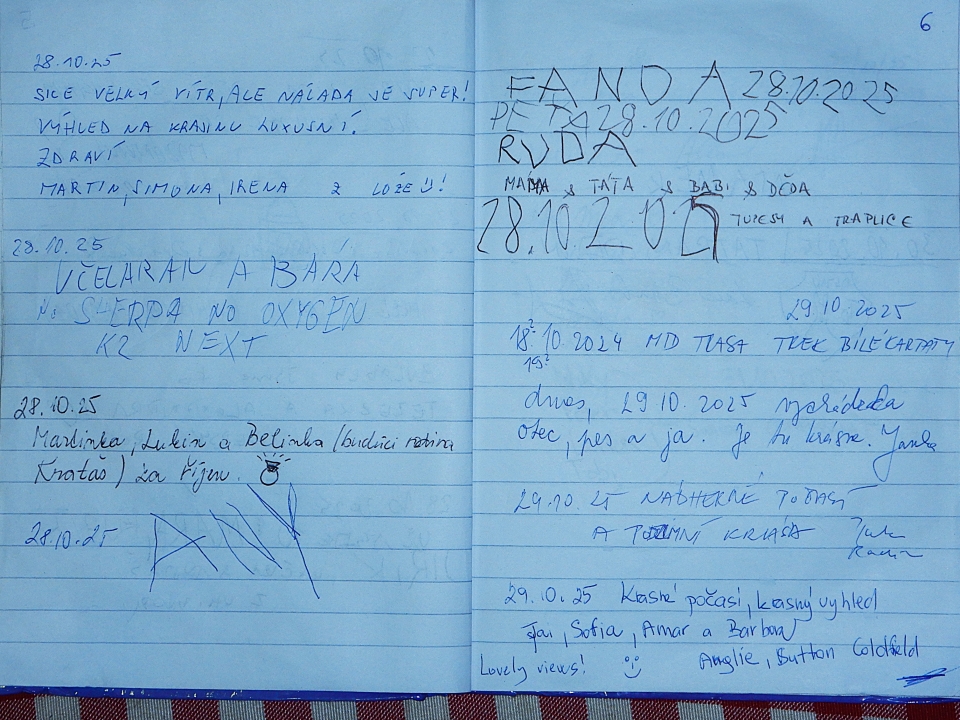 28.10.25
SICE VELKÝ VÍTR, ALE NÁLADA JE SUPER!
VÝHLED NA KRAJINU LUXUSNÍ.
ZDRAVÍ
MARTIN, SIMONA, IRENA Z LOŽE !
28.10.25
VČELARAN A BÁRA
NO SHERPA NO OXYGEN
K2 NEXT
28.10.25
Martinka, Lukin a Belinka (budúci rodina
Krataš) za říjen.
28.10.25 ANY
6
FANDA 28.10.2025
PETA 28.10.2025
RUDA
MAMA & TÁTA & BABI & DĚDA
28.10.2025 TUPESY A TRAPLICE
29.10.2025
18.10.2024 MD TRASA TREK BÍLÉ KARPATY
19
dnes, 29.10.2025 vychádzka
otec, pes a ja. Je tu krásne. Janka
29.10.25 NÁDHERNÉ POČASÍ
A KRÁSA
29.10.25 Krásné počasí, krásný vyhled
Jai, Sofia, Amar a Barbora
Lovely views! Anglie, Button Coldfield